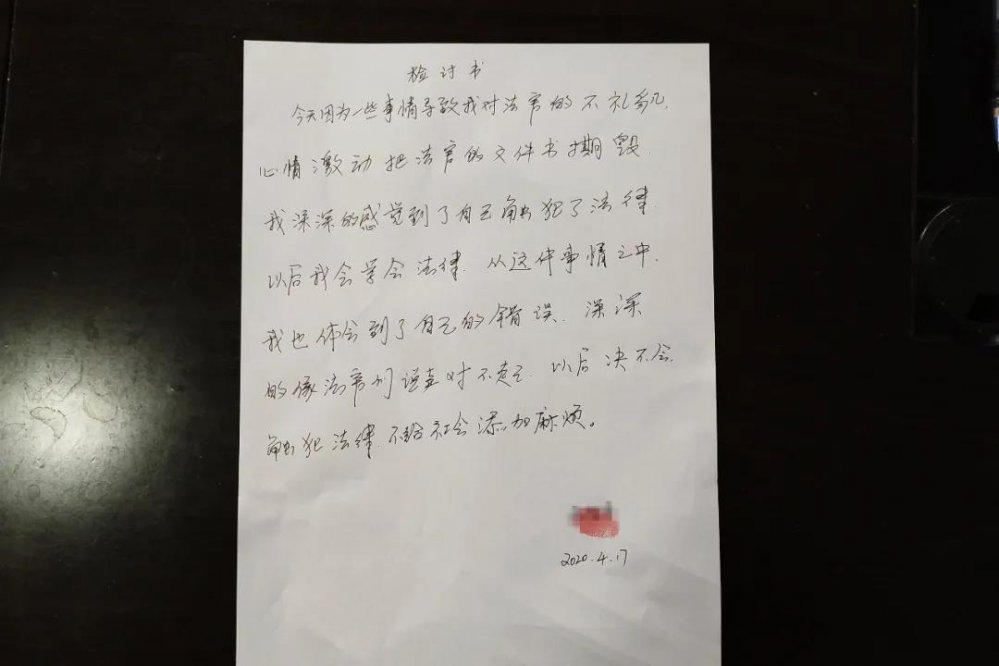 检讨书
今天因为一些事情导致我对法官的不礼貌,
心情激动把法官的文件书撕毁.
我深深的感觉到了自己触犯了法律.
以后我会学会法律.从这件事情之中.
我也体会到了自己的错误.深深
的像法官们说声对不起.以后决不会.
触犯法律.不给社会添加麻烦。
2020.4.17